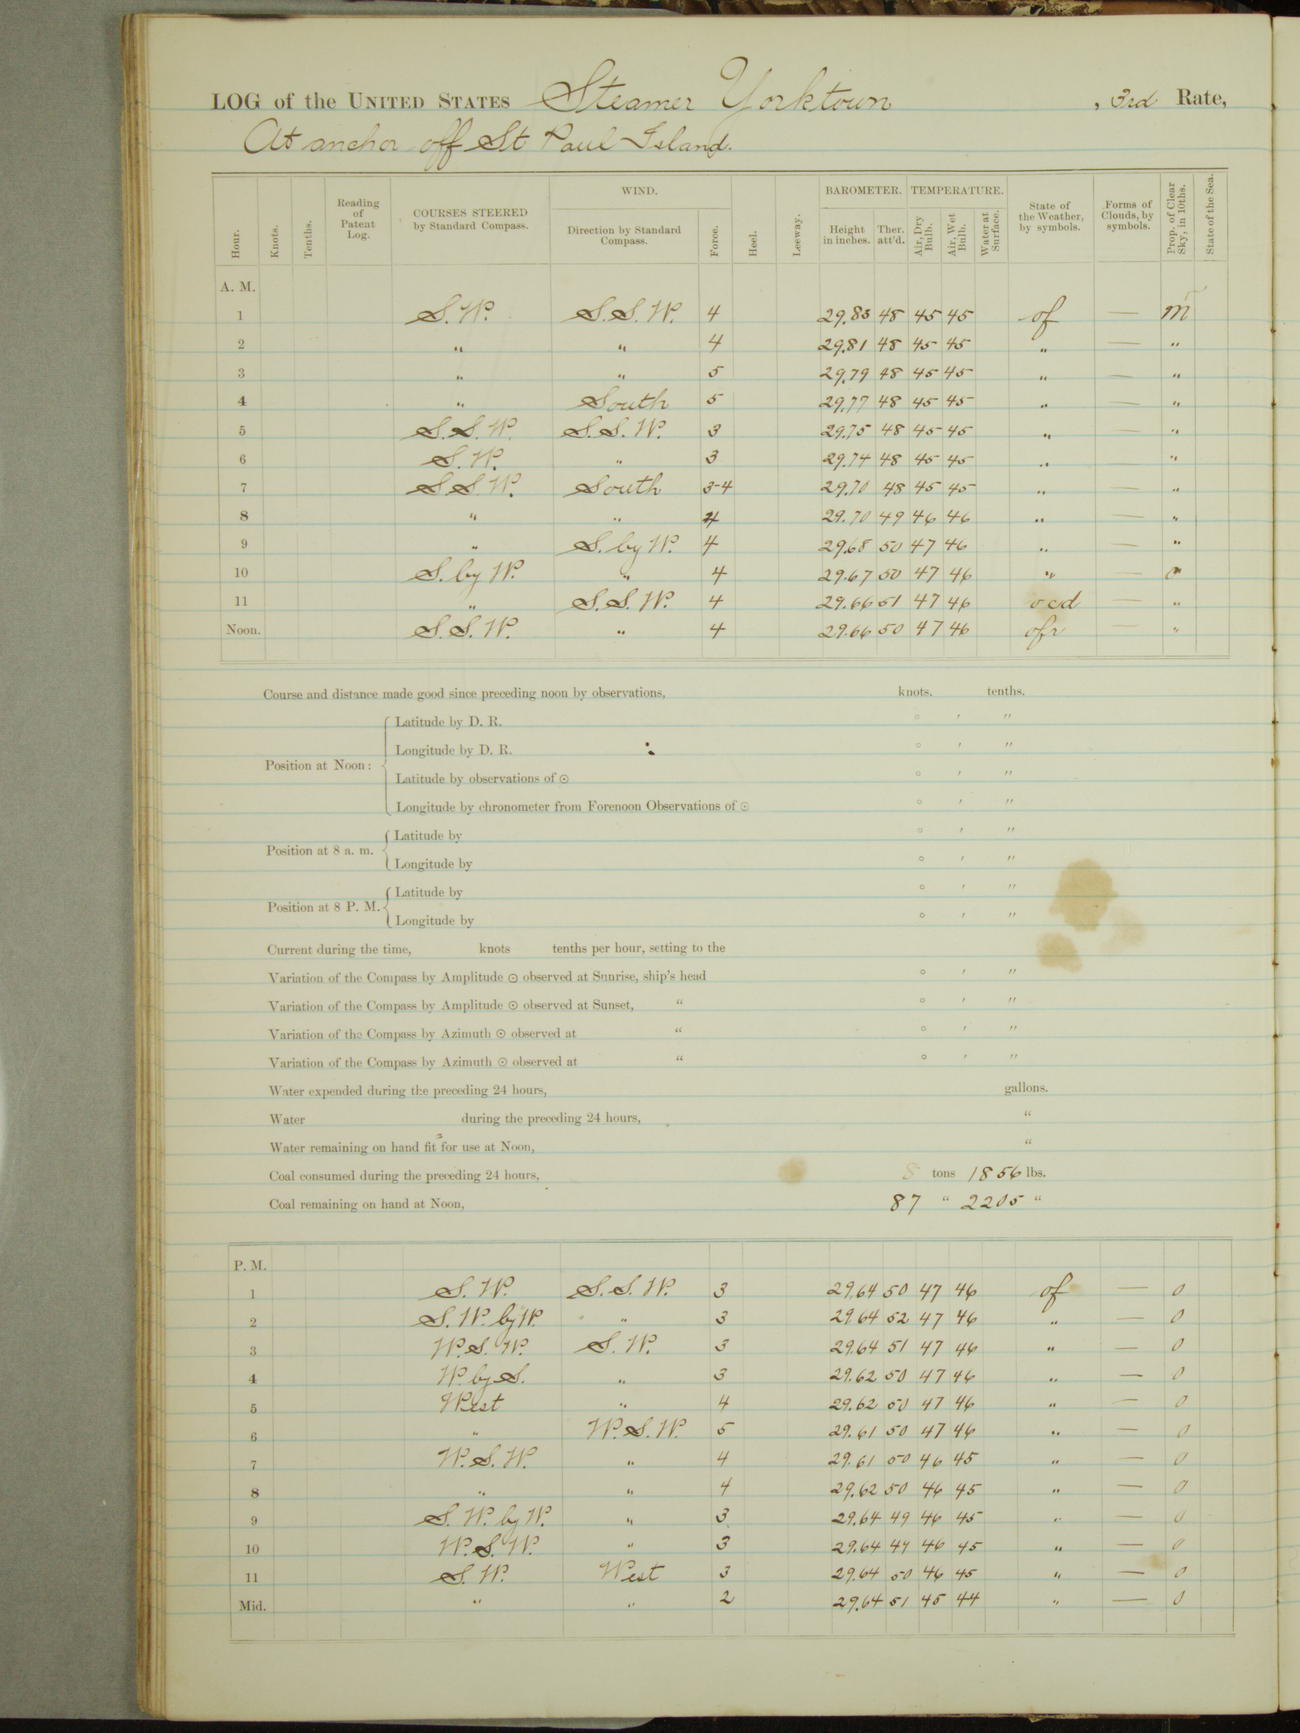 LOG of the UNITED STATES Steamer Yorktown , 3rd Rate,
At anchor off St Paul Island.
Hour. Knots. Tenths. Reading of Patent Log. COURSES STEERED by Standard Compass. WIND. Direction by Standard Compass. Force. Heel. Leeway. BAROMETER. Height in inches. Ther. att'd. TEMPERATURE. Air, Dry Bulb. Air, Wet Bulb. Water at Surface. State of the Weather, by symbols. Forms of Clouds, by symbols. Prop. of Clear Sky, in 10ths. State of the Sea.
A. M.
1 S.W. S.S.W. 4 29.83 48 45 45 of — m
2 " " 4 29.81 48 45 45 " — "
3 " " 5 29.79 48 45 45 " — "
4 " South 5 29.77 48 45 45 " — "
5 S.S.W. S.S.W. 3 29.75 48 45 45 " — "
6 S.W. " 3 29.74 48 45 45 " "
7 S.S.W. South 3-4 29.70 48 45 45 " — "
8 " " 4 29.70 49 46 46 " — "
9 " S. by W. 4 29.68 50 47 46 " — "
10 S. by W. " 4 29.67 50 47 46 " — 0
11 " S.S.W. 4 29.66 51 47 46 ocd — "
Noon. S.S.W. " 4 29.66 50 47 46 ofr — "
Course and distance made good since preceding noon by observations, knots. tenths.
Position at Noon: Latitude by D. R. ° ′ ″
Longitude by D. R. ° ′ ″
Latitude by observations of ☉ ° ′ ″
Longitude by chronometer from Forenoon Observations of ☉ ° ′ ″
Position at 8 a. m. Latitude by ° ′ ″
Longitude by ° ′ ″
Position at 8 P. M. Latitude by ° ′ ″
Longitude by ° ′ ″
Current during the time, knots tenths per hour, setting to the
Variation of the Compass by Amplitude ☉ observed at Sunrise, ship's head ° ′ ″
Variation of the Compass by Amplitude ☉ observed at Sunset, “ ° ′ ″
Variation of the Compass by Azimuth ☉ observed at “ ° ′ ″
Variation of the Compass by Azimuth ☉ observed at “ ° ′ ″
Water expended during the preceding 24 hours, gallons.
Water during the preceding 24 hours, “
Water remaining on hand fit for use at Noon, “
Coal consumed during the preceding 24 hours, 8 tons 1856 lbs.
Coal remaining on hand at Noon, 87 “ 2205 “
P. M.
1 S.W. S.S.W. 3 29.64 50 47 46 of — 0
2 S.W. by W. " 3 29.64 52 47 46 " — 0
3 W.S.W. S.W. 3 29.64 51 47 46 " — 0
4 W. by S. " 3 29.62 50 47 46 " — 0
5 West " 4 29.62 50 47 46 " — 0
6 " W.S.W. 5 29.61 50 47 46 " — 0
7 W.S.W. " 4 29.61 50 46 45 " — 0
8 " " 4 29.62 50 46 45 " — 0
9 S.W. by W. " 3 29.64 49 46 45 " — 0
10 W.S.W. " 3 29.64 49 46 45 " — 0
11 S.W. West 3 29.64 50 46 45 " — 0
Mid. " " 2 29.64 51 45 44 " — 0